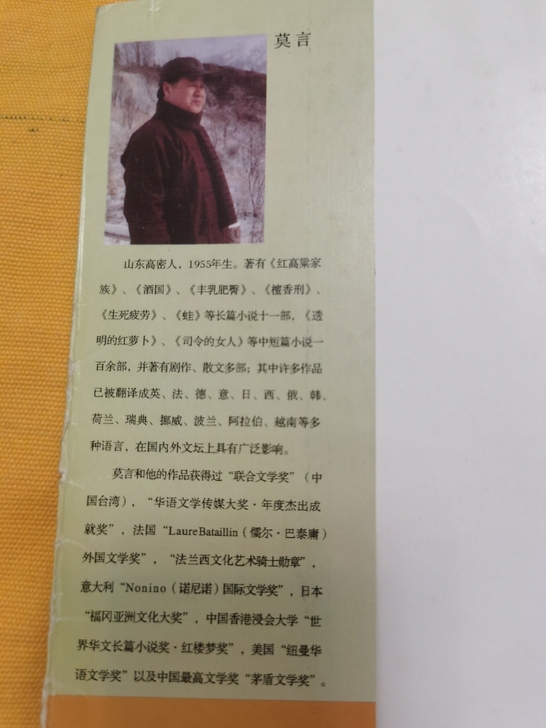 莫言
山东高密人，1955年生。著有《红高粱家
族》、《酒国》、《丰乳肥臀》、《檀香刑》、
《生死疲劳》、《蛙》等长篇小说十一部，《透
明的红萝卜》、《司令的女人》等中短篇小说一
百余部，并著有剧作、散文多部；其中许多作品
已被翻译成英、法、德、意、日、西、俄、韩、
荷兰、瑞典、挪威、波兰、阿拉伯、越南等多
种语言，在国内外文坛上具有广泛影响。
莫言和他的作品获得过“联合文学奖”（中
国台湾），“华语文学传媒大奖·年度杰出成
就奖”，法国“Laure Bataillin（儒尔·巴泰庸）
外国文学奖”，“法兰西文化艺术骑士勋章”，
意大利“Nonino（诺尼诺）国际文学奖”，日本
“福冈亚洲文化大奖”，中国香港浸会大学“世
界华文长篇小说奖·红楼梦奖”，美国“纽曼华
语文学奖”以及中国最高文学奖“茅盾文学奖”。